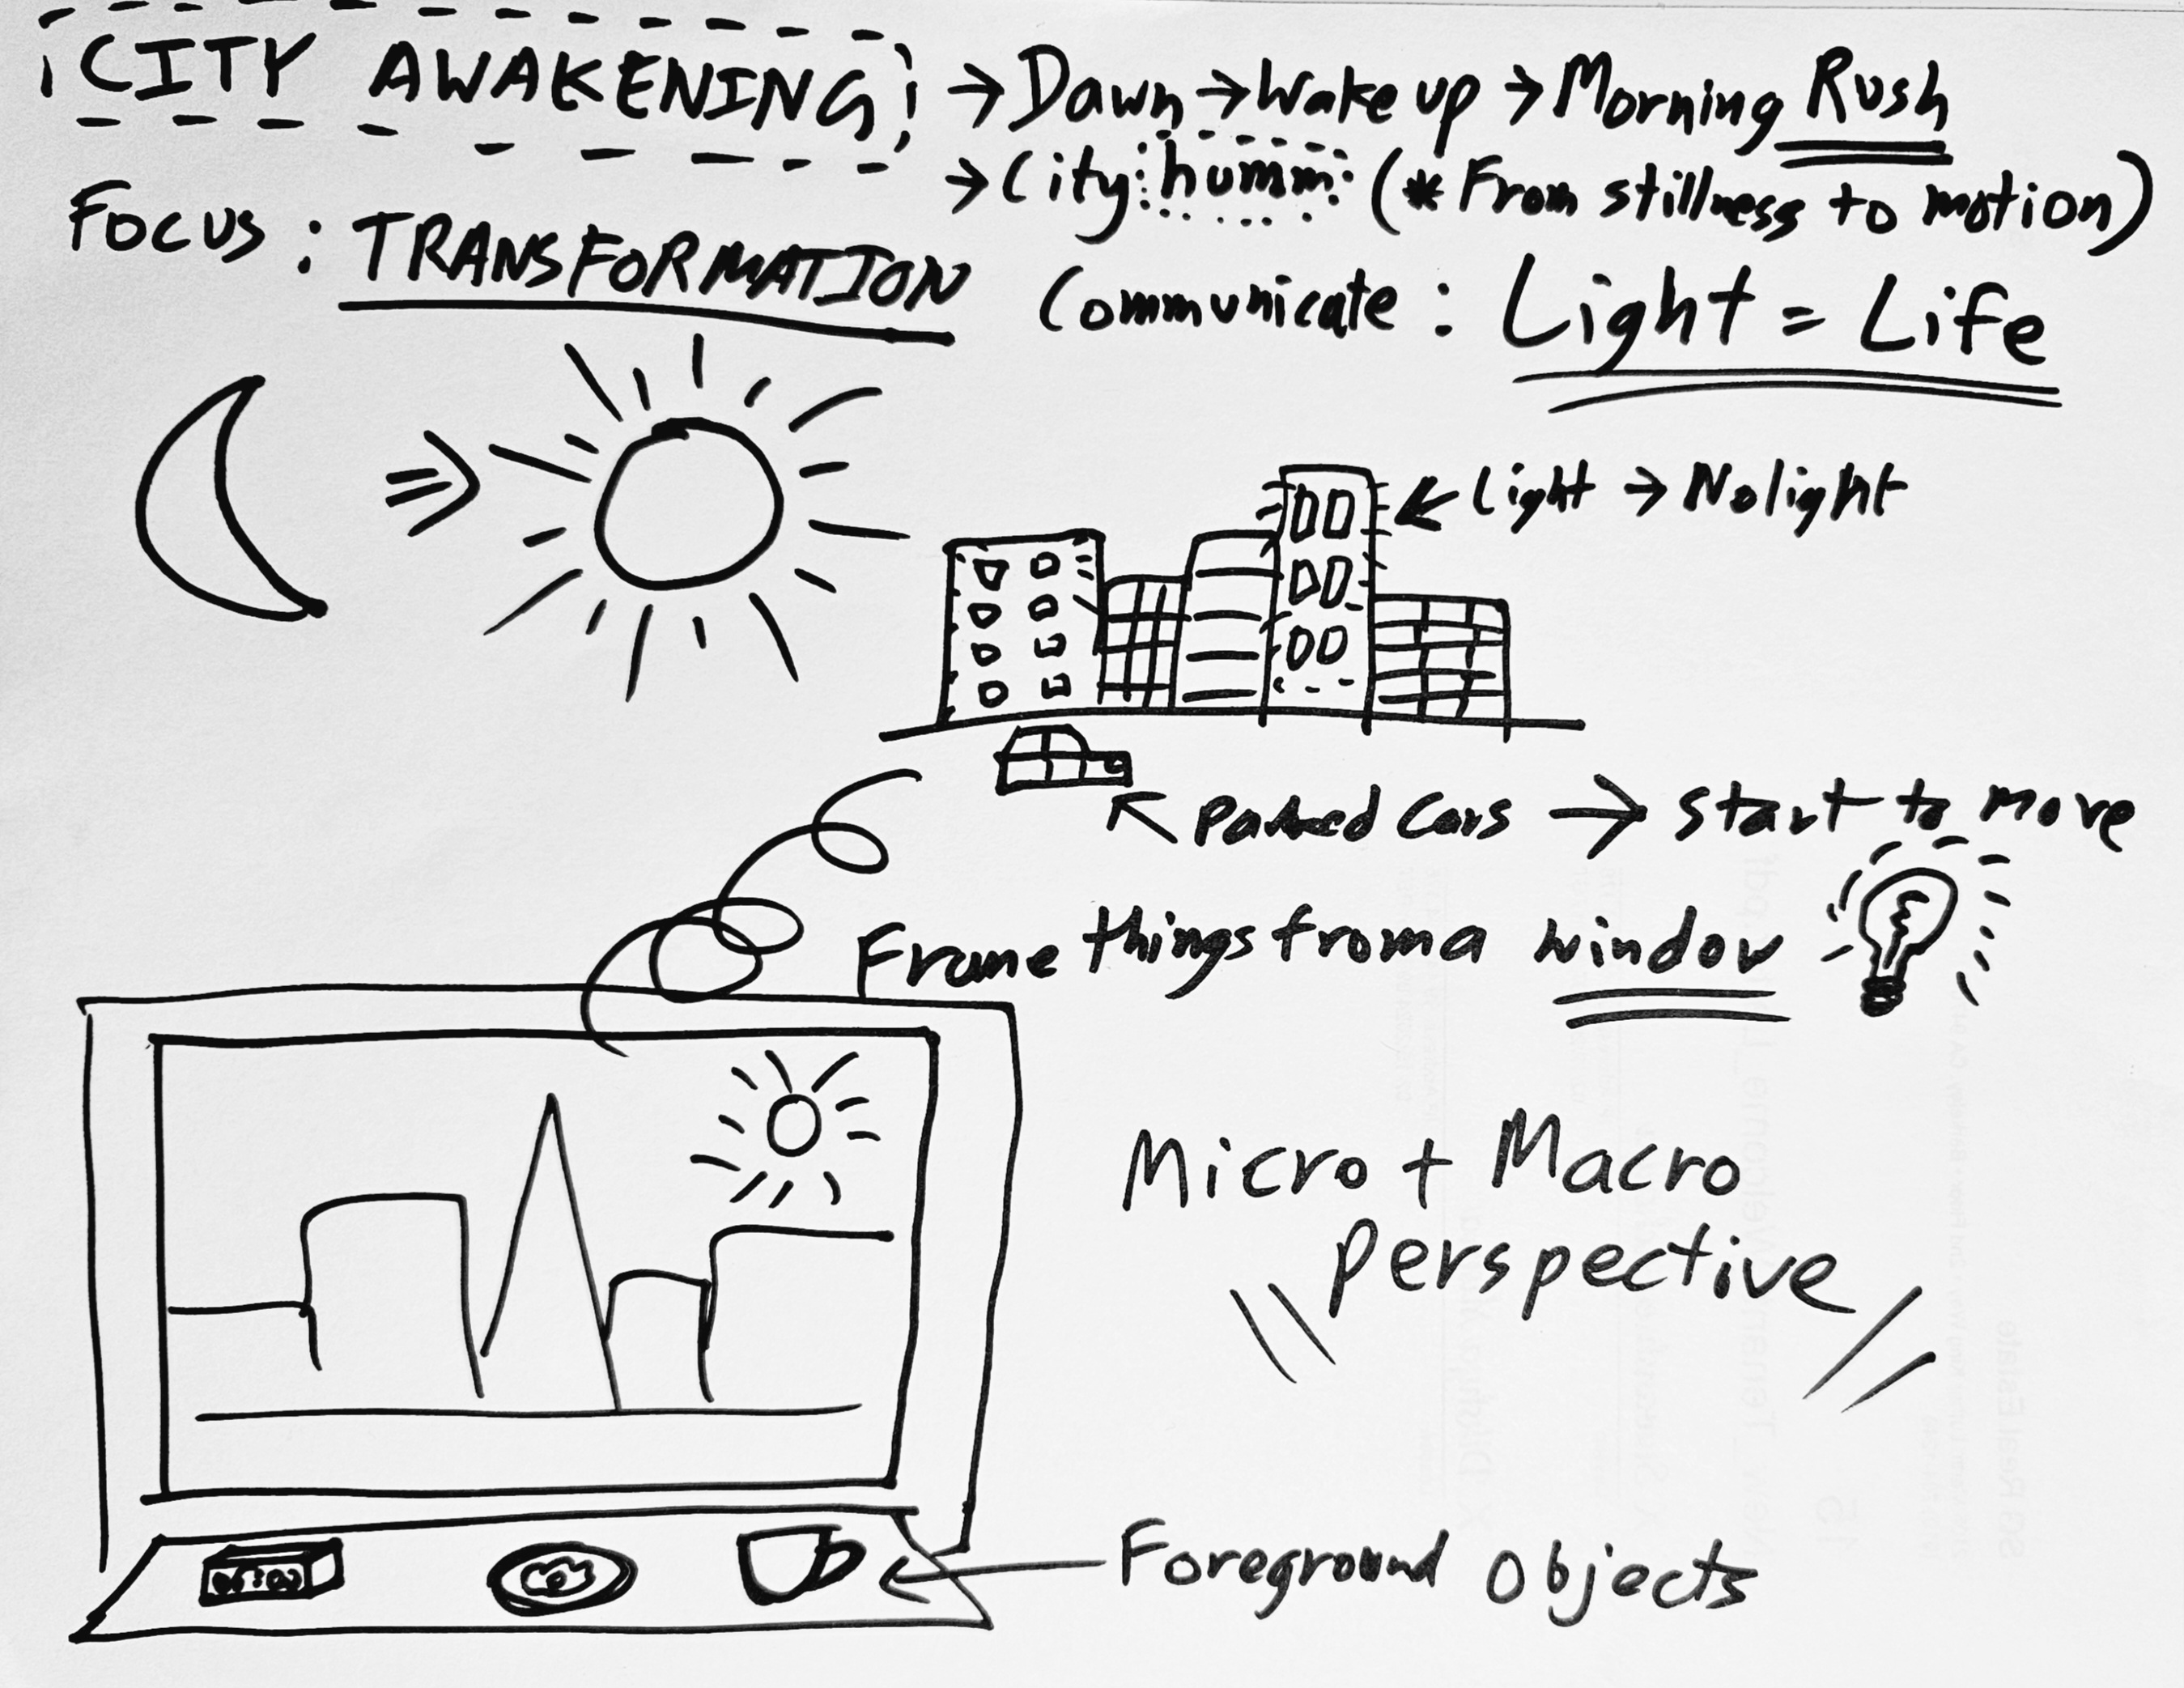 CITY AWAKENING → Dawn → Wake up → Morning Rush
→ City humm (* From stillness to motion)
Focus : TRANSFORMATION
Communicate : Light = Life
Light → No light
Parked Cars → start to move
Frame things from a window
Micro + Macro
perspective
Foreground Objects